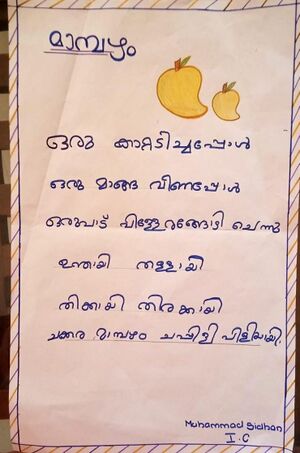 മാമ്പഴം
ഒരു കാറ്റടിച്ചപ്പോൾ
ഒരു മാങ്ങ വീണപ്പോൾ
ഒരുപാട് പിള്ളേരങ്ങോടി ചെന്നു
ഉന്തായി തള്ളായി
തിക്കായി തിരക്കായി
ചക്കര മാമ്പഴം ചപ്പിളി പിളിയായി.
Muhammad Sidhan
I.C